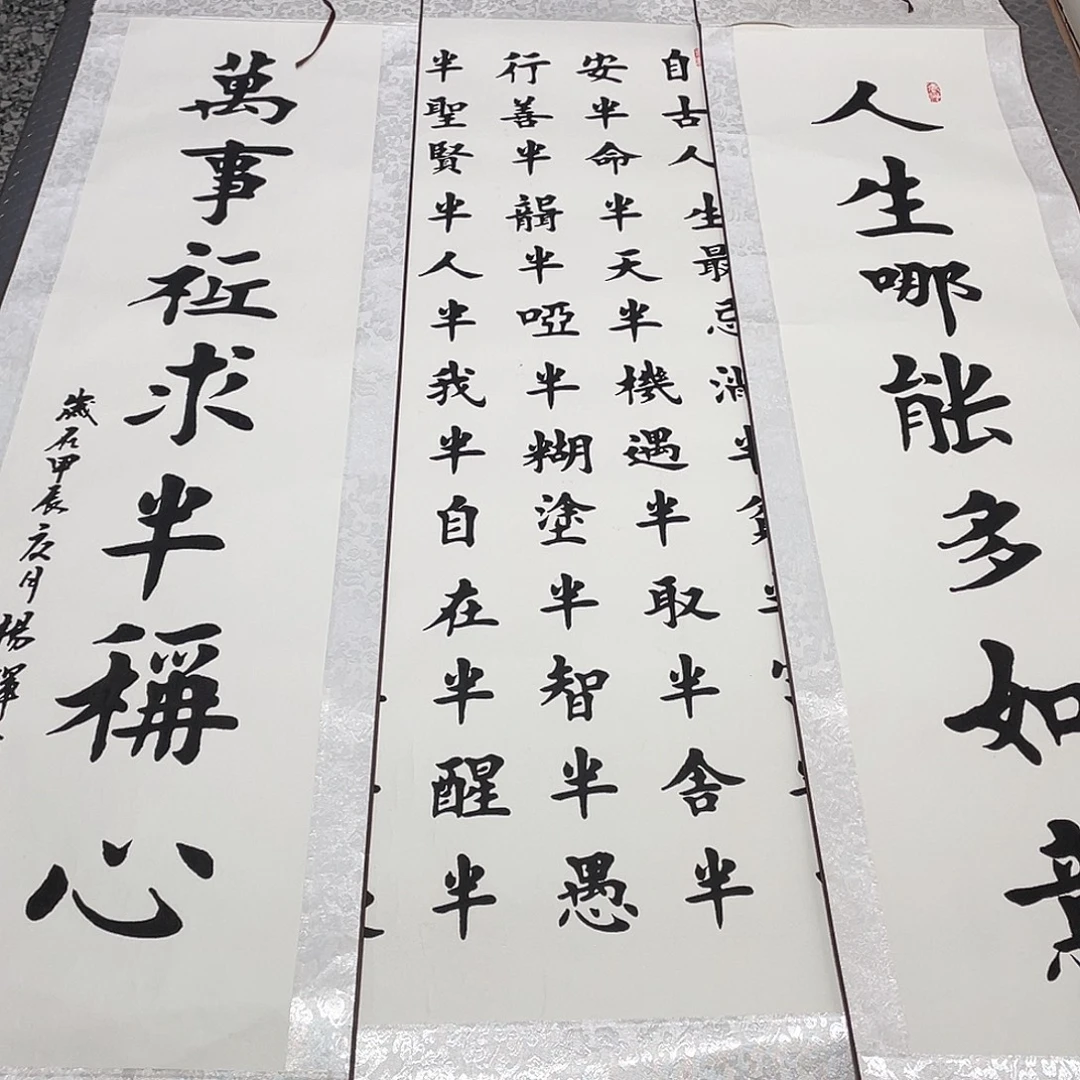 人生哪能多如意
自古人生最忌半半半
安半命半天半機遇半取半舍半
行善半聾半啞半糊塗半智半愚
半聖賢半人半我半自在半醒半
萬事衹求半稱心
歲在甲辰月楊